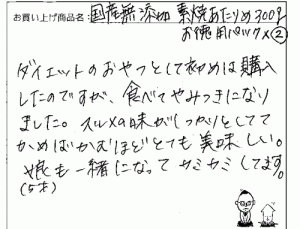 お買い上げ商品名:国産無添加 素焼あたりめ300g
お徳用パックx②
ダイエットのおやつとして初めは購入
したのですが、食べてやみつきになり
ました。スルメの味がしっかりとしてて
かめばかむほどとても美味しい。
娘も一緒になってカミカミしてます。
(5才)